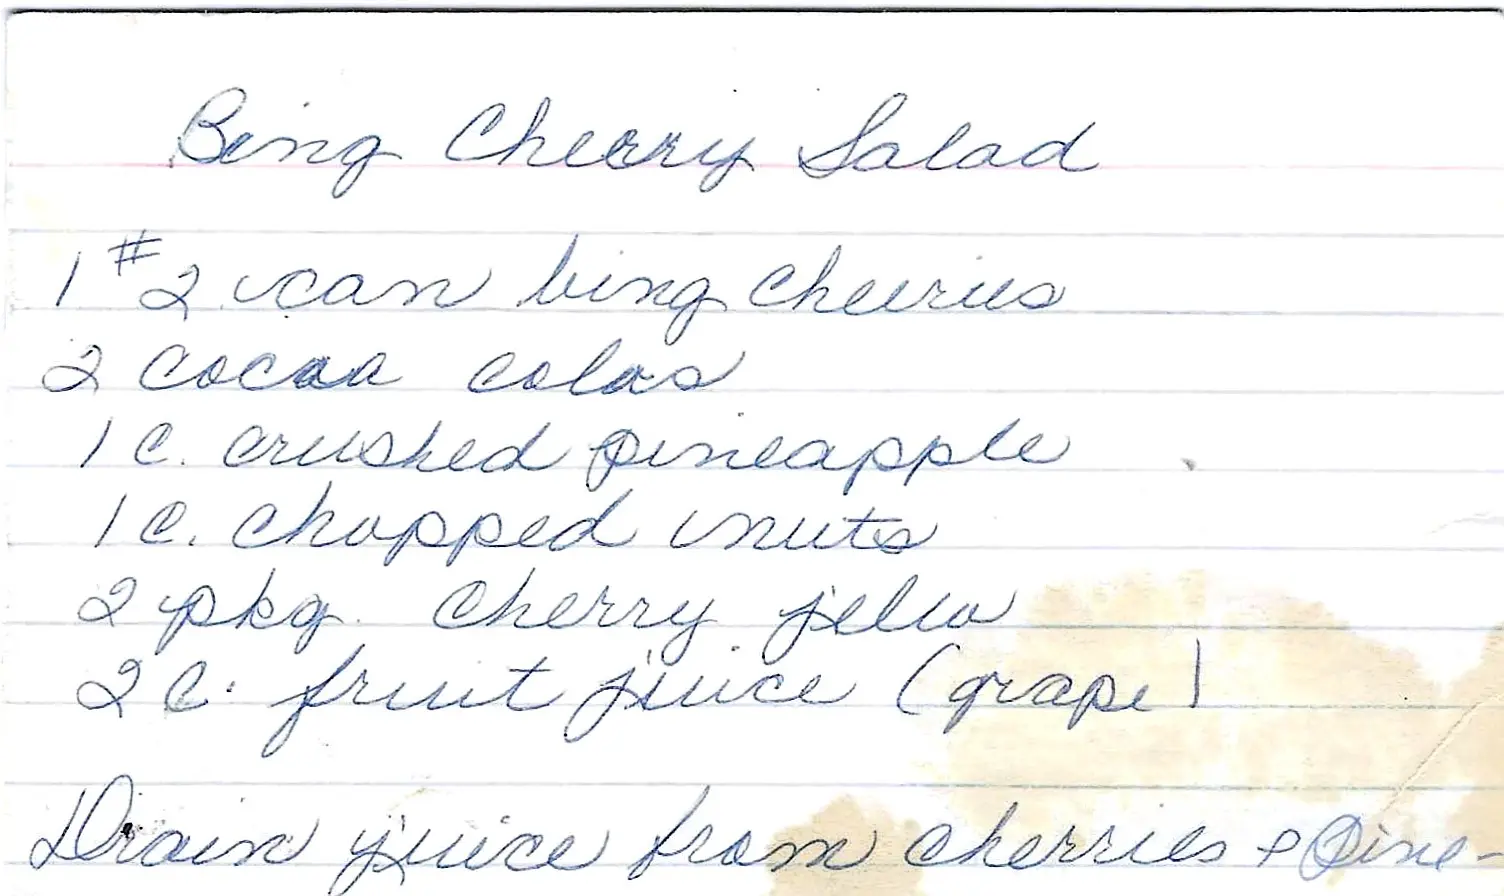 Bing Cherry Salad
1 #2 can bing cherries
2 cocoa colas
1 c. crushed pineapple
1 c. chopped nuts
2 pkg. cherry jello
2 c. fruit juice (grape)
Drain juice from cherries + pine-